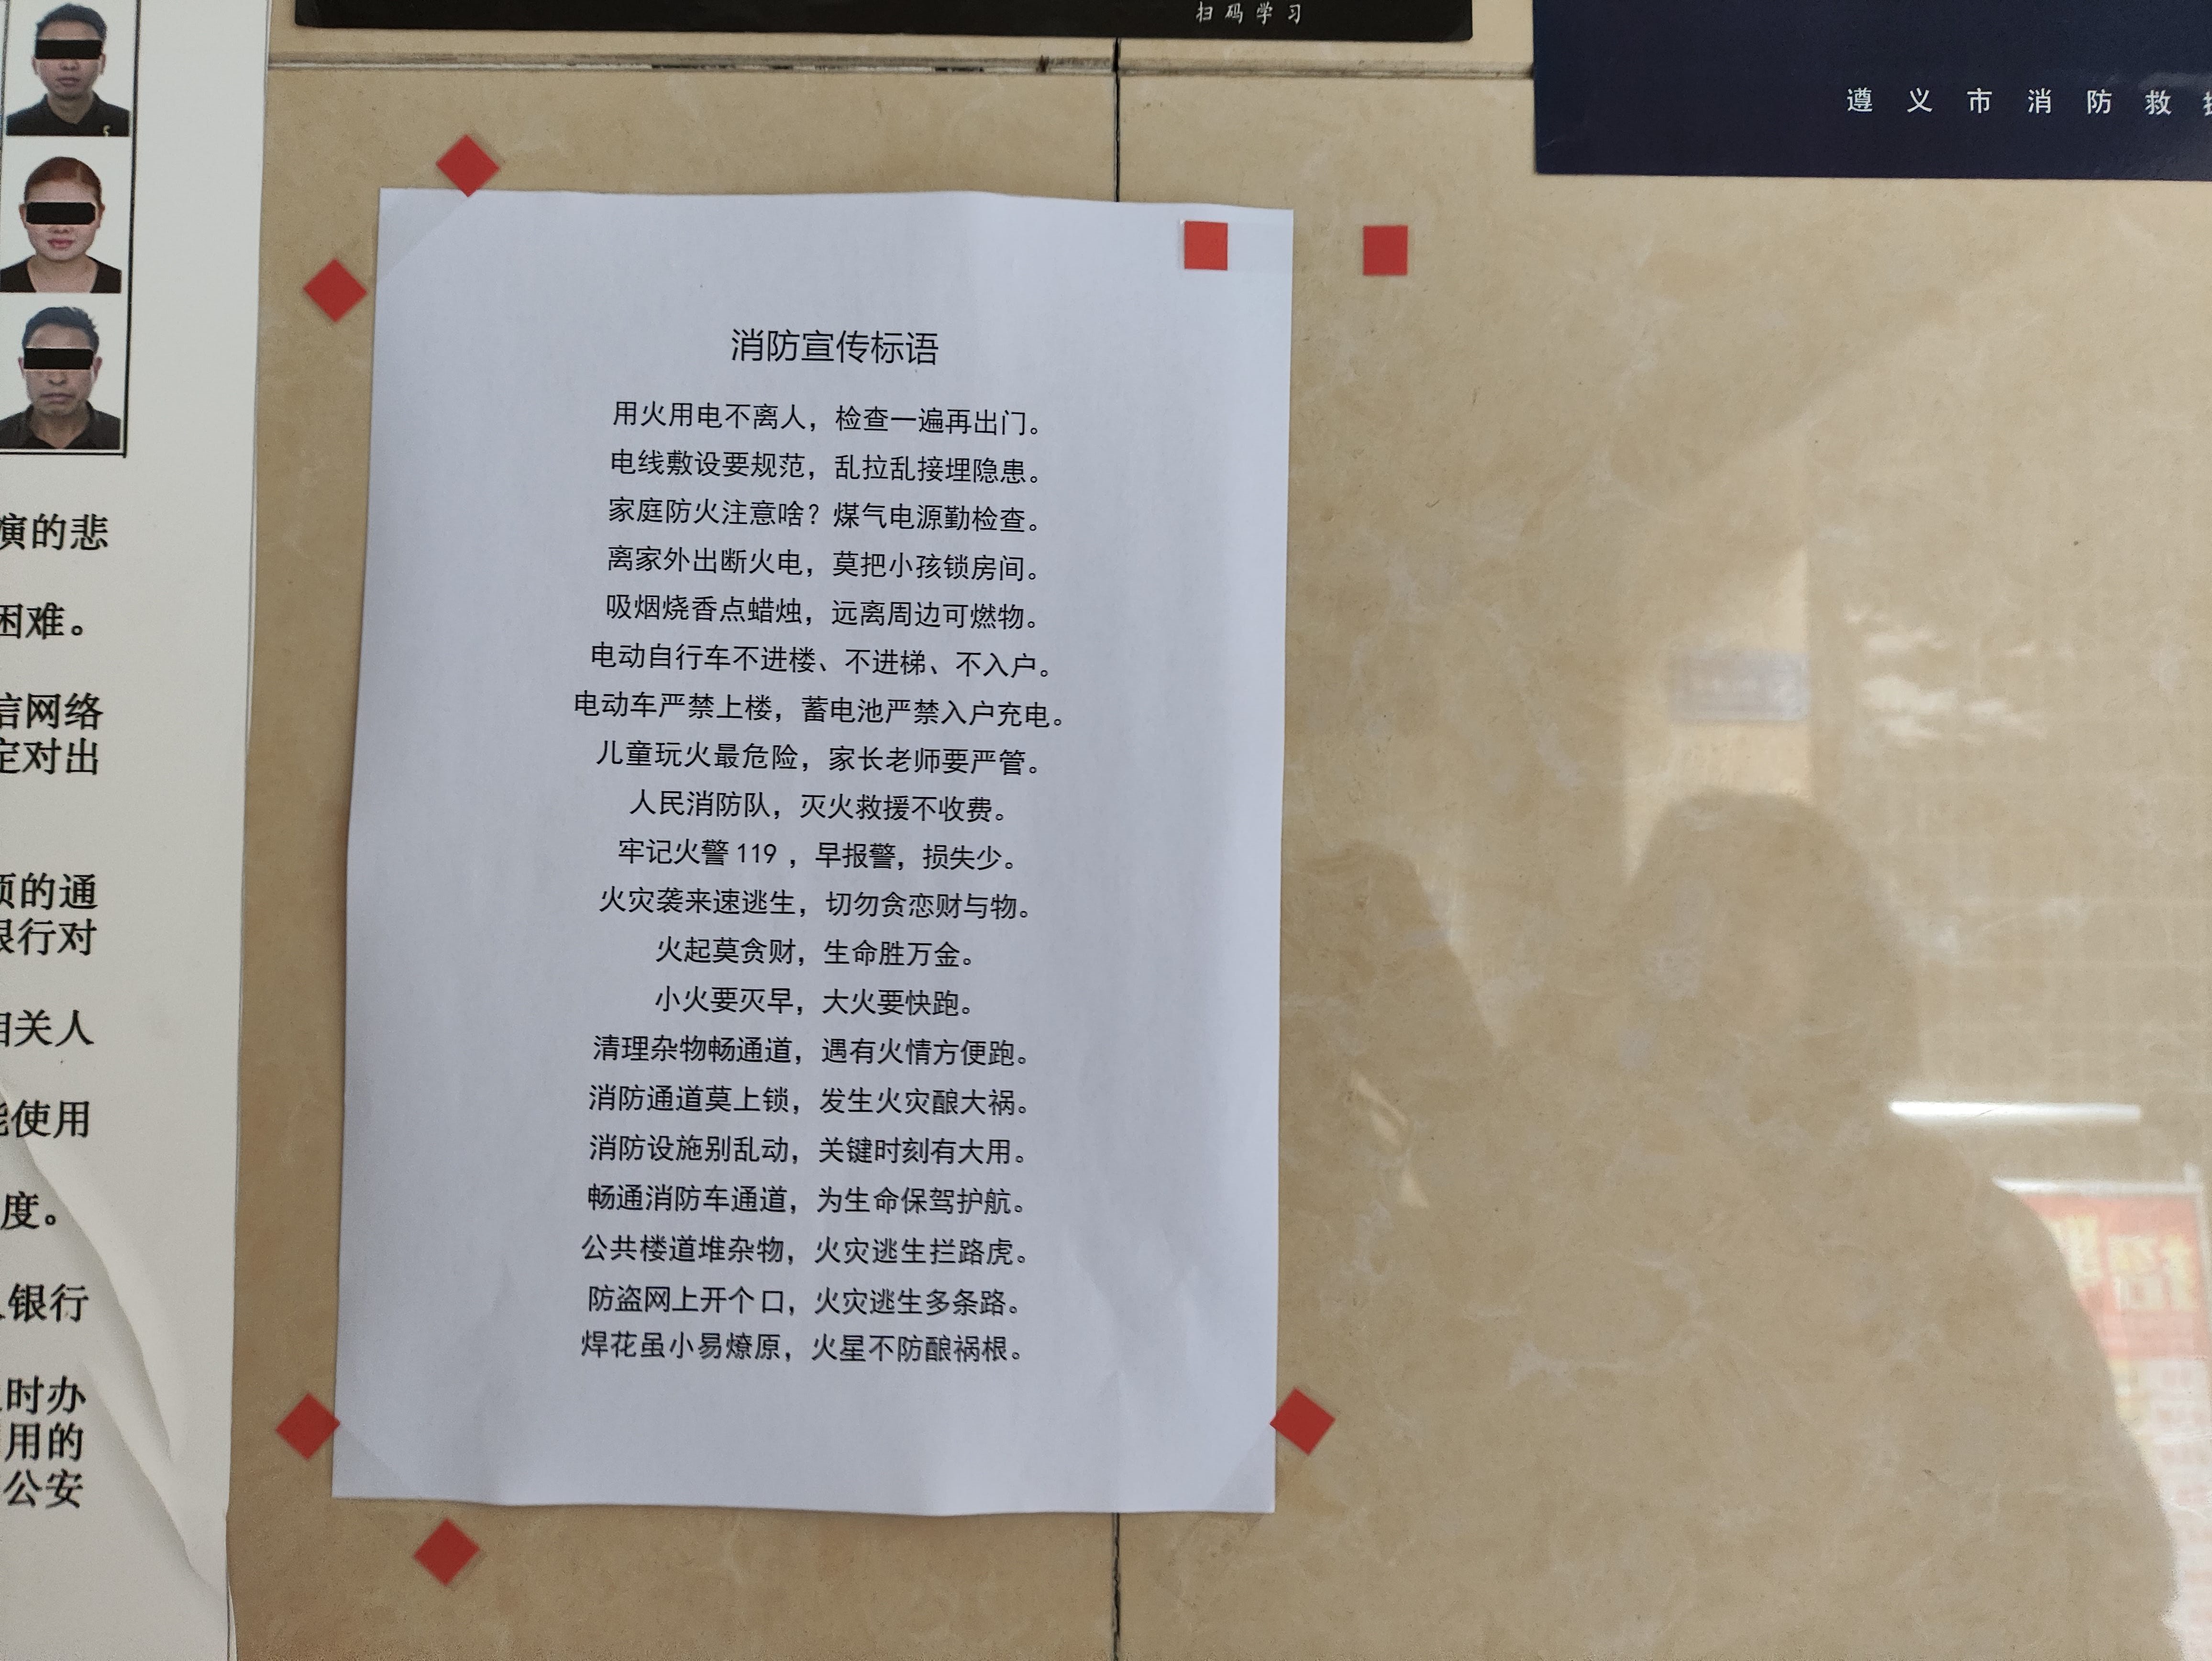 扫码学习
遵义市消防救
演的悲
困难。
信网络
定对出
的通
银行对
相关人
能使用
度。
银行
时办
用的
公安
消防宣传标语
用火用电不离人，检查一遍再出门。
电线敷设要规范，乱拉乱接埋隐患。
家庭防火注意啥？煤气电源勤检查。
离家外出断火电，莫把小孩锁房间。
吸烟烧香点蜡烛，远离周边可燃物。
电动自行车不进楼、不进梯、不入户。
电动车严禁上楼，蓄电池严禁入户充电。
儿童玩火最危险，家长老师要严管。
人民消防队，灭火救援不收费。
牢记火警119，早报警，损失少。
火灾袭来速逃生，切勿贪恋财与物。
火起莫贪财，生命胜万金。
小火要灭早，大火要快跑。
清理杂物畅通道，遇有火情方便跑。
消防通道莫上锁，发生火灾酿大祸。
消防设施别乱动，关键时刻有大用。
畅通消防车通道，为生命保驾护航。
公共楼道堆杂物，火灾逃生拦路虎。
防盗网上开个口，火灾逃生多条路。
焊花虽小易燎原，火星不防酿祸根。